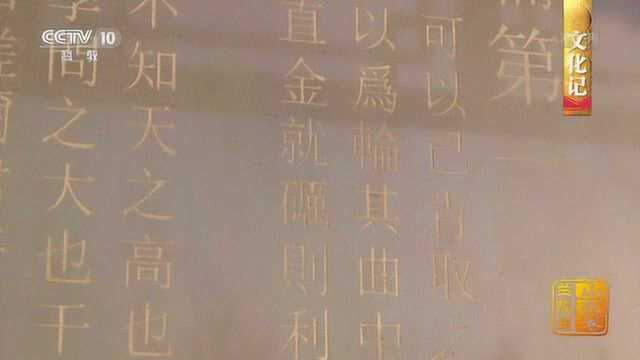 CCTV 10
科教
文化记
第一
可以已青取
以爲輪其曲中
直金就礪則利
不知天之高也
問之大也干